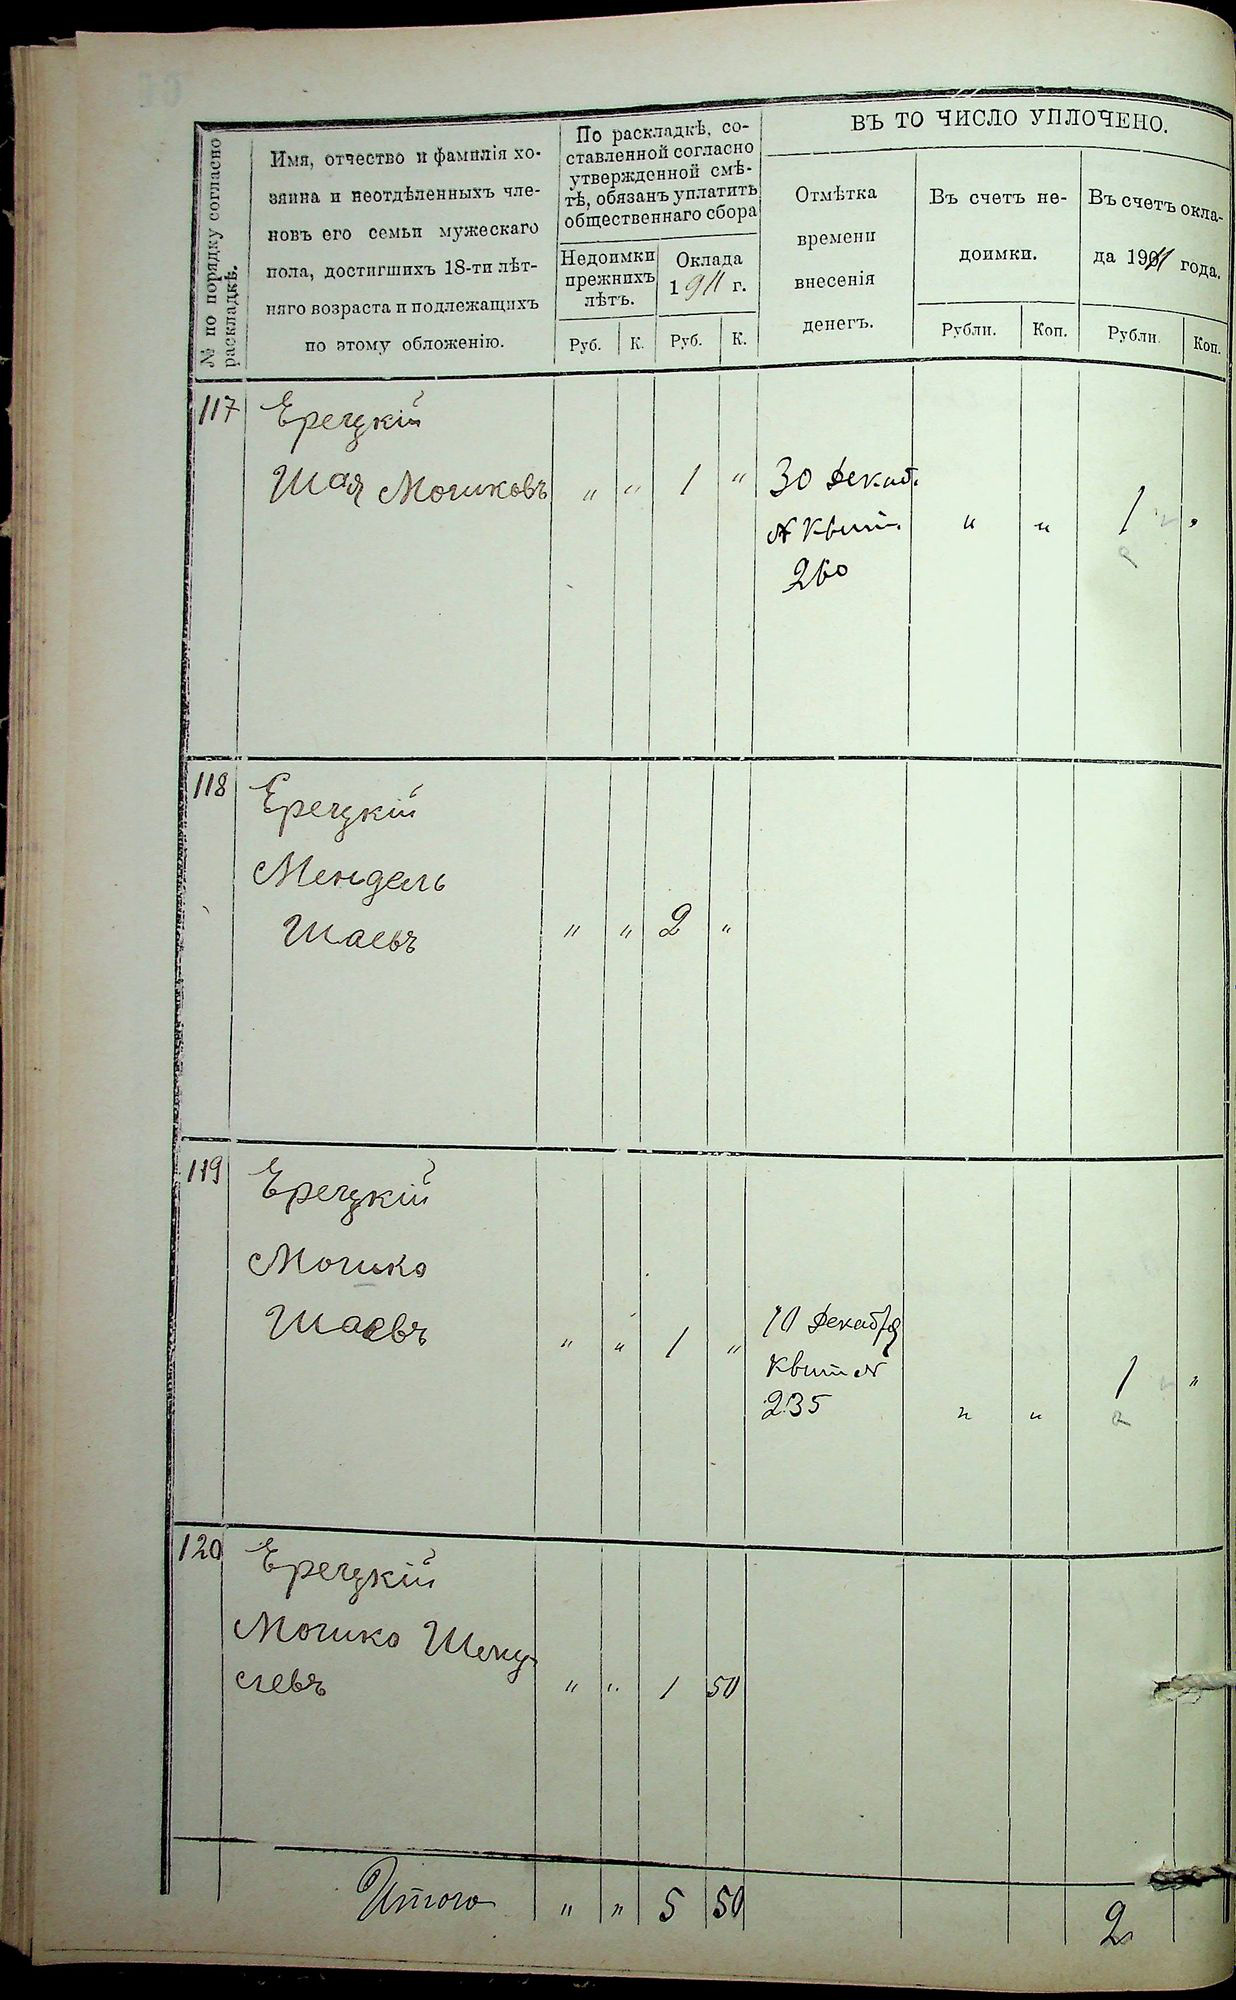 № по порядку согласно
раскладкѣ.
Имя, отчество и фамилія хо-
зяина и неотдѣленныхъ чле-
новъ его семьи мужескаго
пола, достигшихъ 18-ти лѣт-
няго возраста и подлежащихъ
по этому обложенію.
По раскладкѣ, со-
ставленной согласно
утвержденной смѣ-
тѣ, обязанъ уплатить
общественнаго сбора
Недоимки
прежнихъ
лѣтъ.
Оклада
1911 г.
Руб. К. Руб. К.
ВЪ ТО ЧИСЛО УПЛОЧЕНО.
Отмѣтка
времени
внесенія
денегъ.
Въ счетъ не-
доимки.
Рубли. Коп.
Въ счетъ окла-
да 1911 года.
Рубли. Коп.
117 Ерецкій
Шая Мошковъ " " 1 " 30 Декаб.
№ Квит. " " 1
260
118 Ерецкій
Мендель
Шаевъ " " 2 "
119 Ерецкій
Мошко
Шаевъ " " 1 " 10 Декабря
Квит № 1 "
235 " "
120 Ерецкій
Мошко
" " 1 50
Итого " " 5 50 2